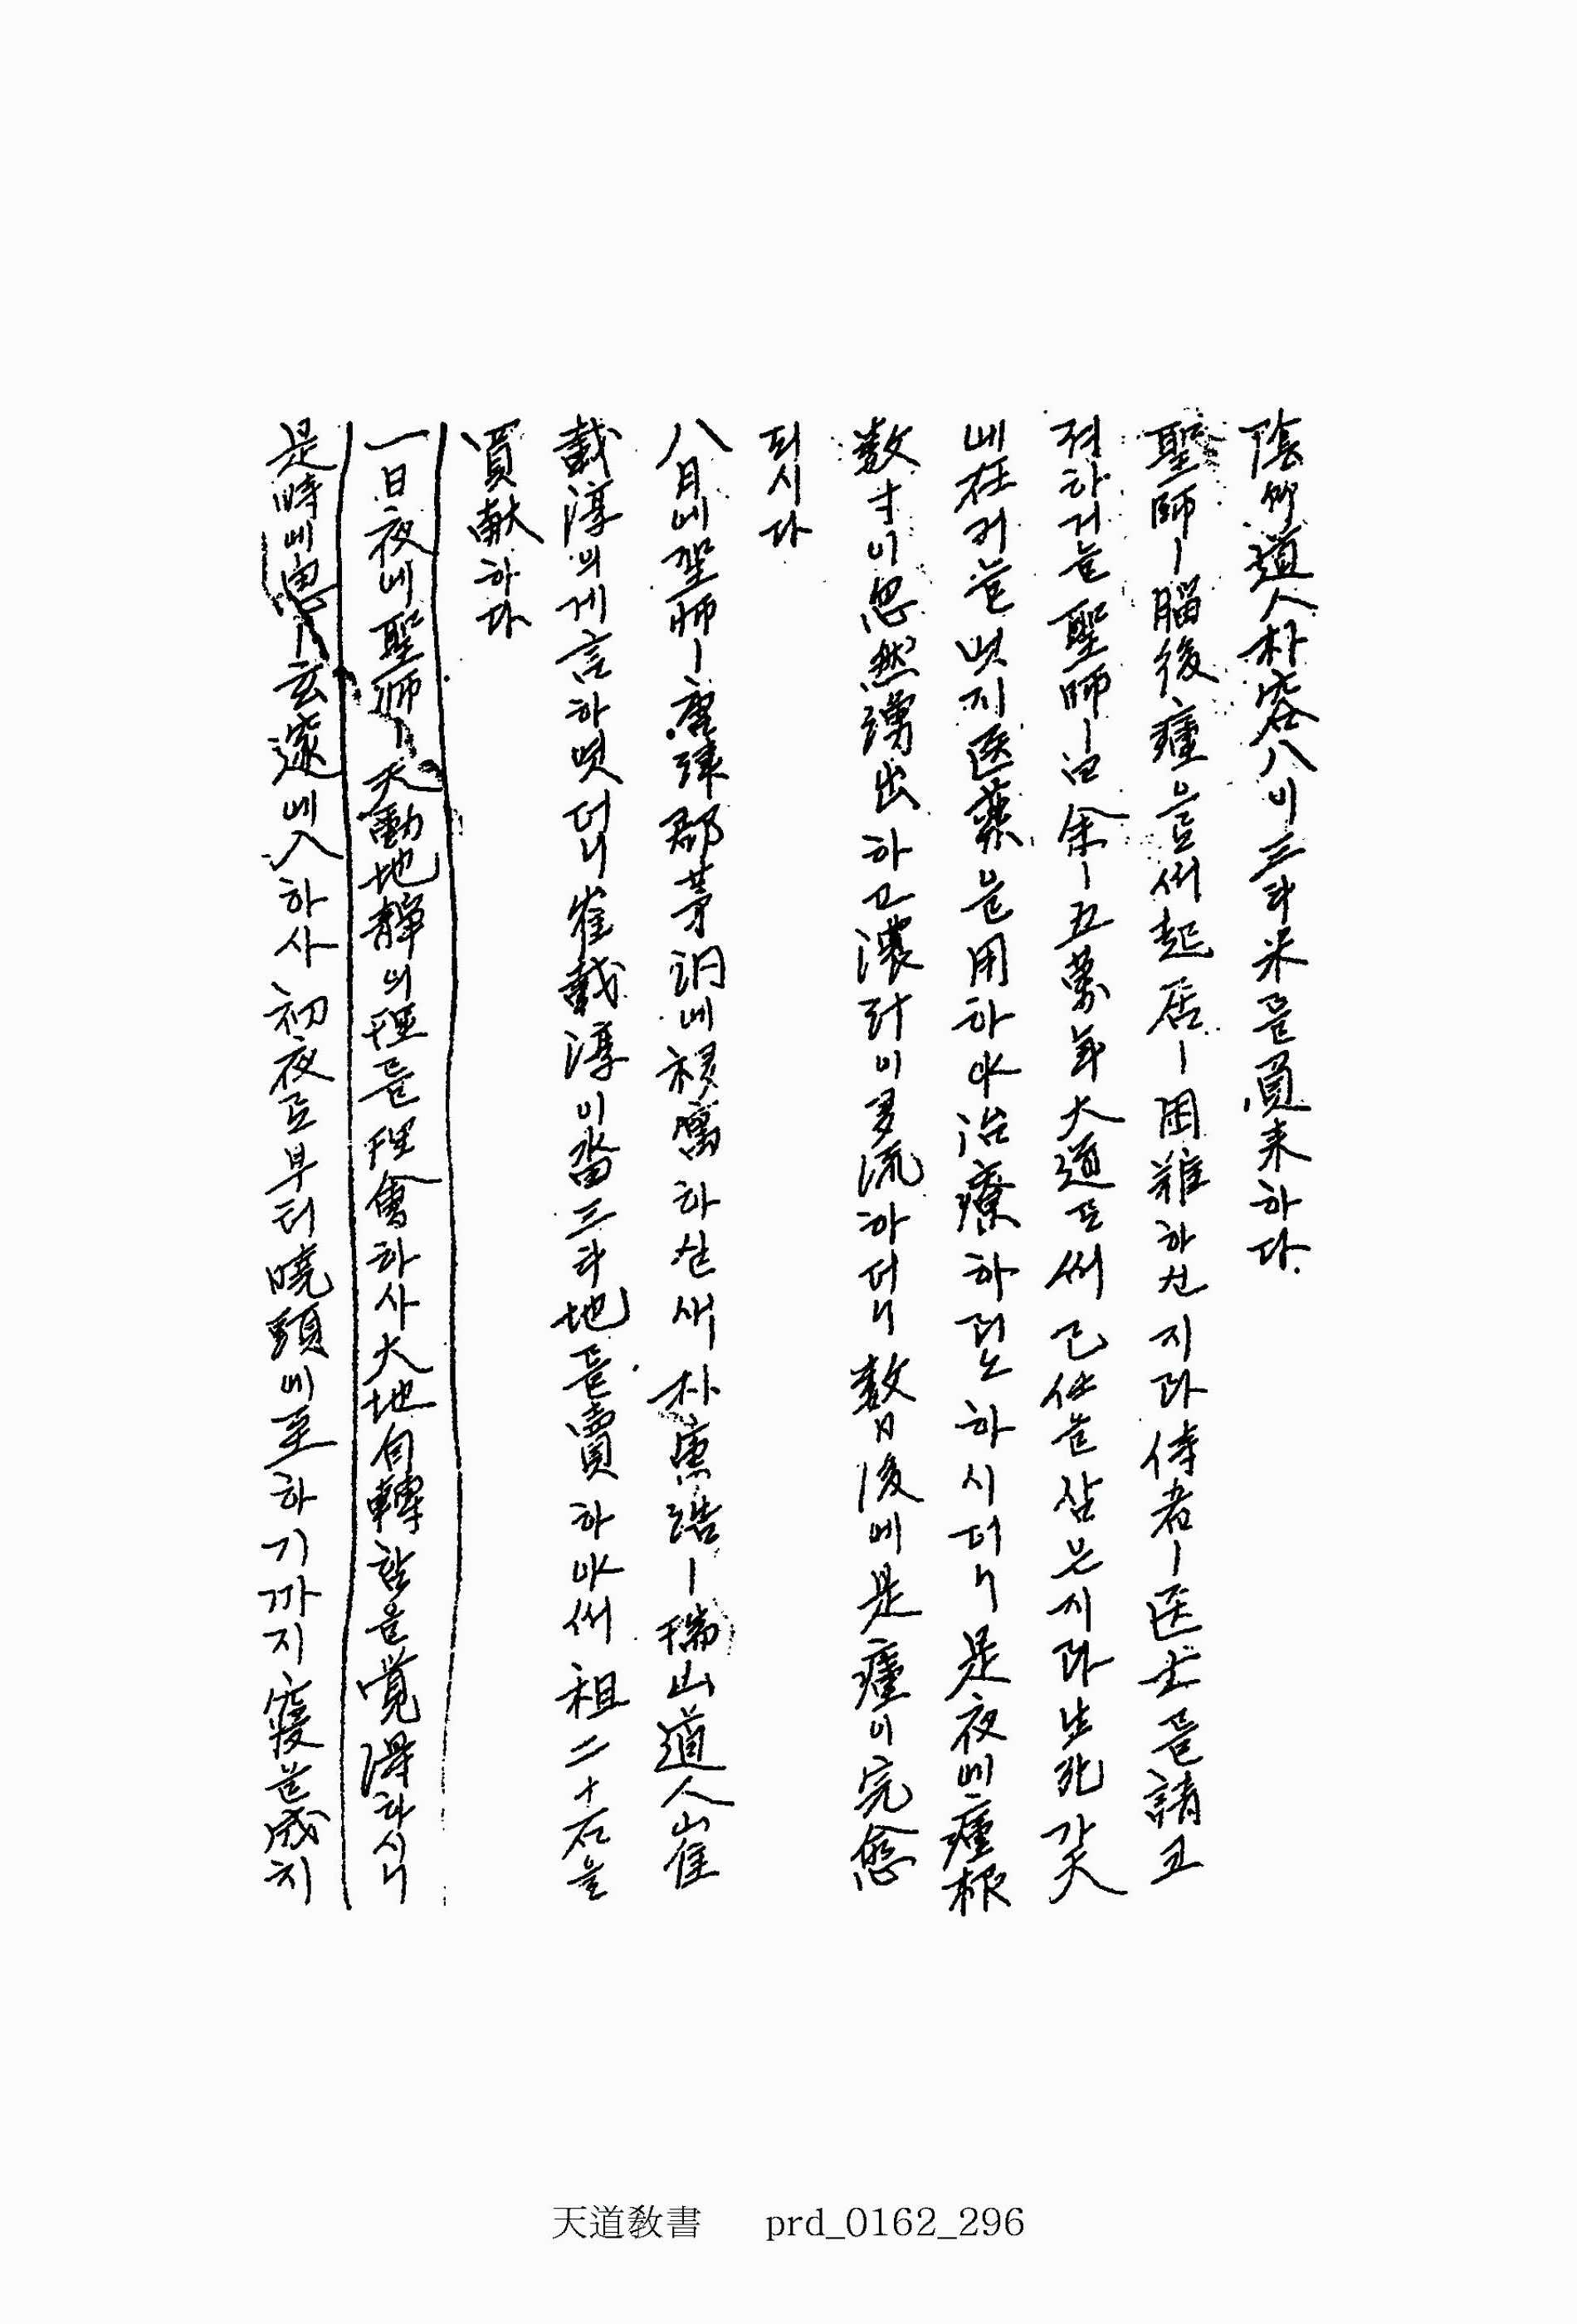 陰竹道人朴容八이 三斗米를 負来하다.
聖師ㅣ 腦後瘇으로써 起居ㅣ 困難하신지라 侍者ㅣ 医士를 請코
져하거늘 聖師ㅣ 曰 余ㅣ 五萬年大道로써 己任을 삼은지라 生死가 天
에 在커늘 엇지 医藥을 用하야 治療하리요 하시더니 是夜에 瘇根
数寸이 忽然湧出하고 濃汁이 多流하더니 数日後에 是瘇이 完愈
되시다
八月에 聖師ㅣ 唐津郡茅洞에 移寓하신새 朴寅浩ㅣ 瑞山道人崔
載淳의게 言하엿더니 崔載淳이 畓三斗地를 賣하야써 租二十石을
買献하다
一日夜에 聖師ㅣ 天動地靜의 理를 理會하사 大地自轉함을 覺得하시니
是時에 思ㅣ 玄邃에 入하사 初夜로부터 曉頭에 至하기까지 寢을 成치
天道敎書 prd_0162_296